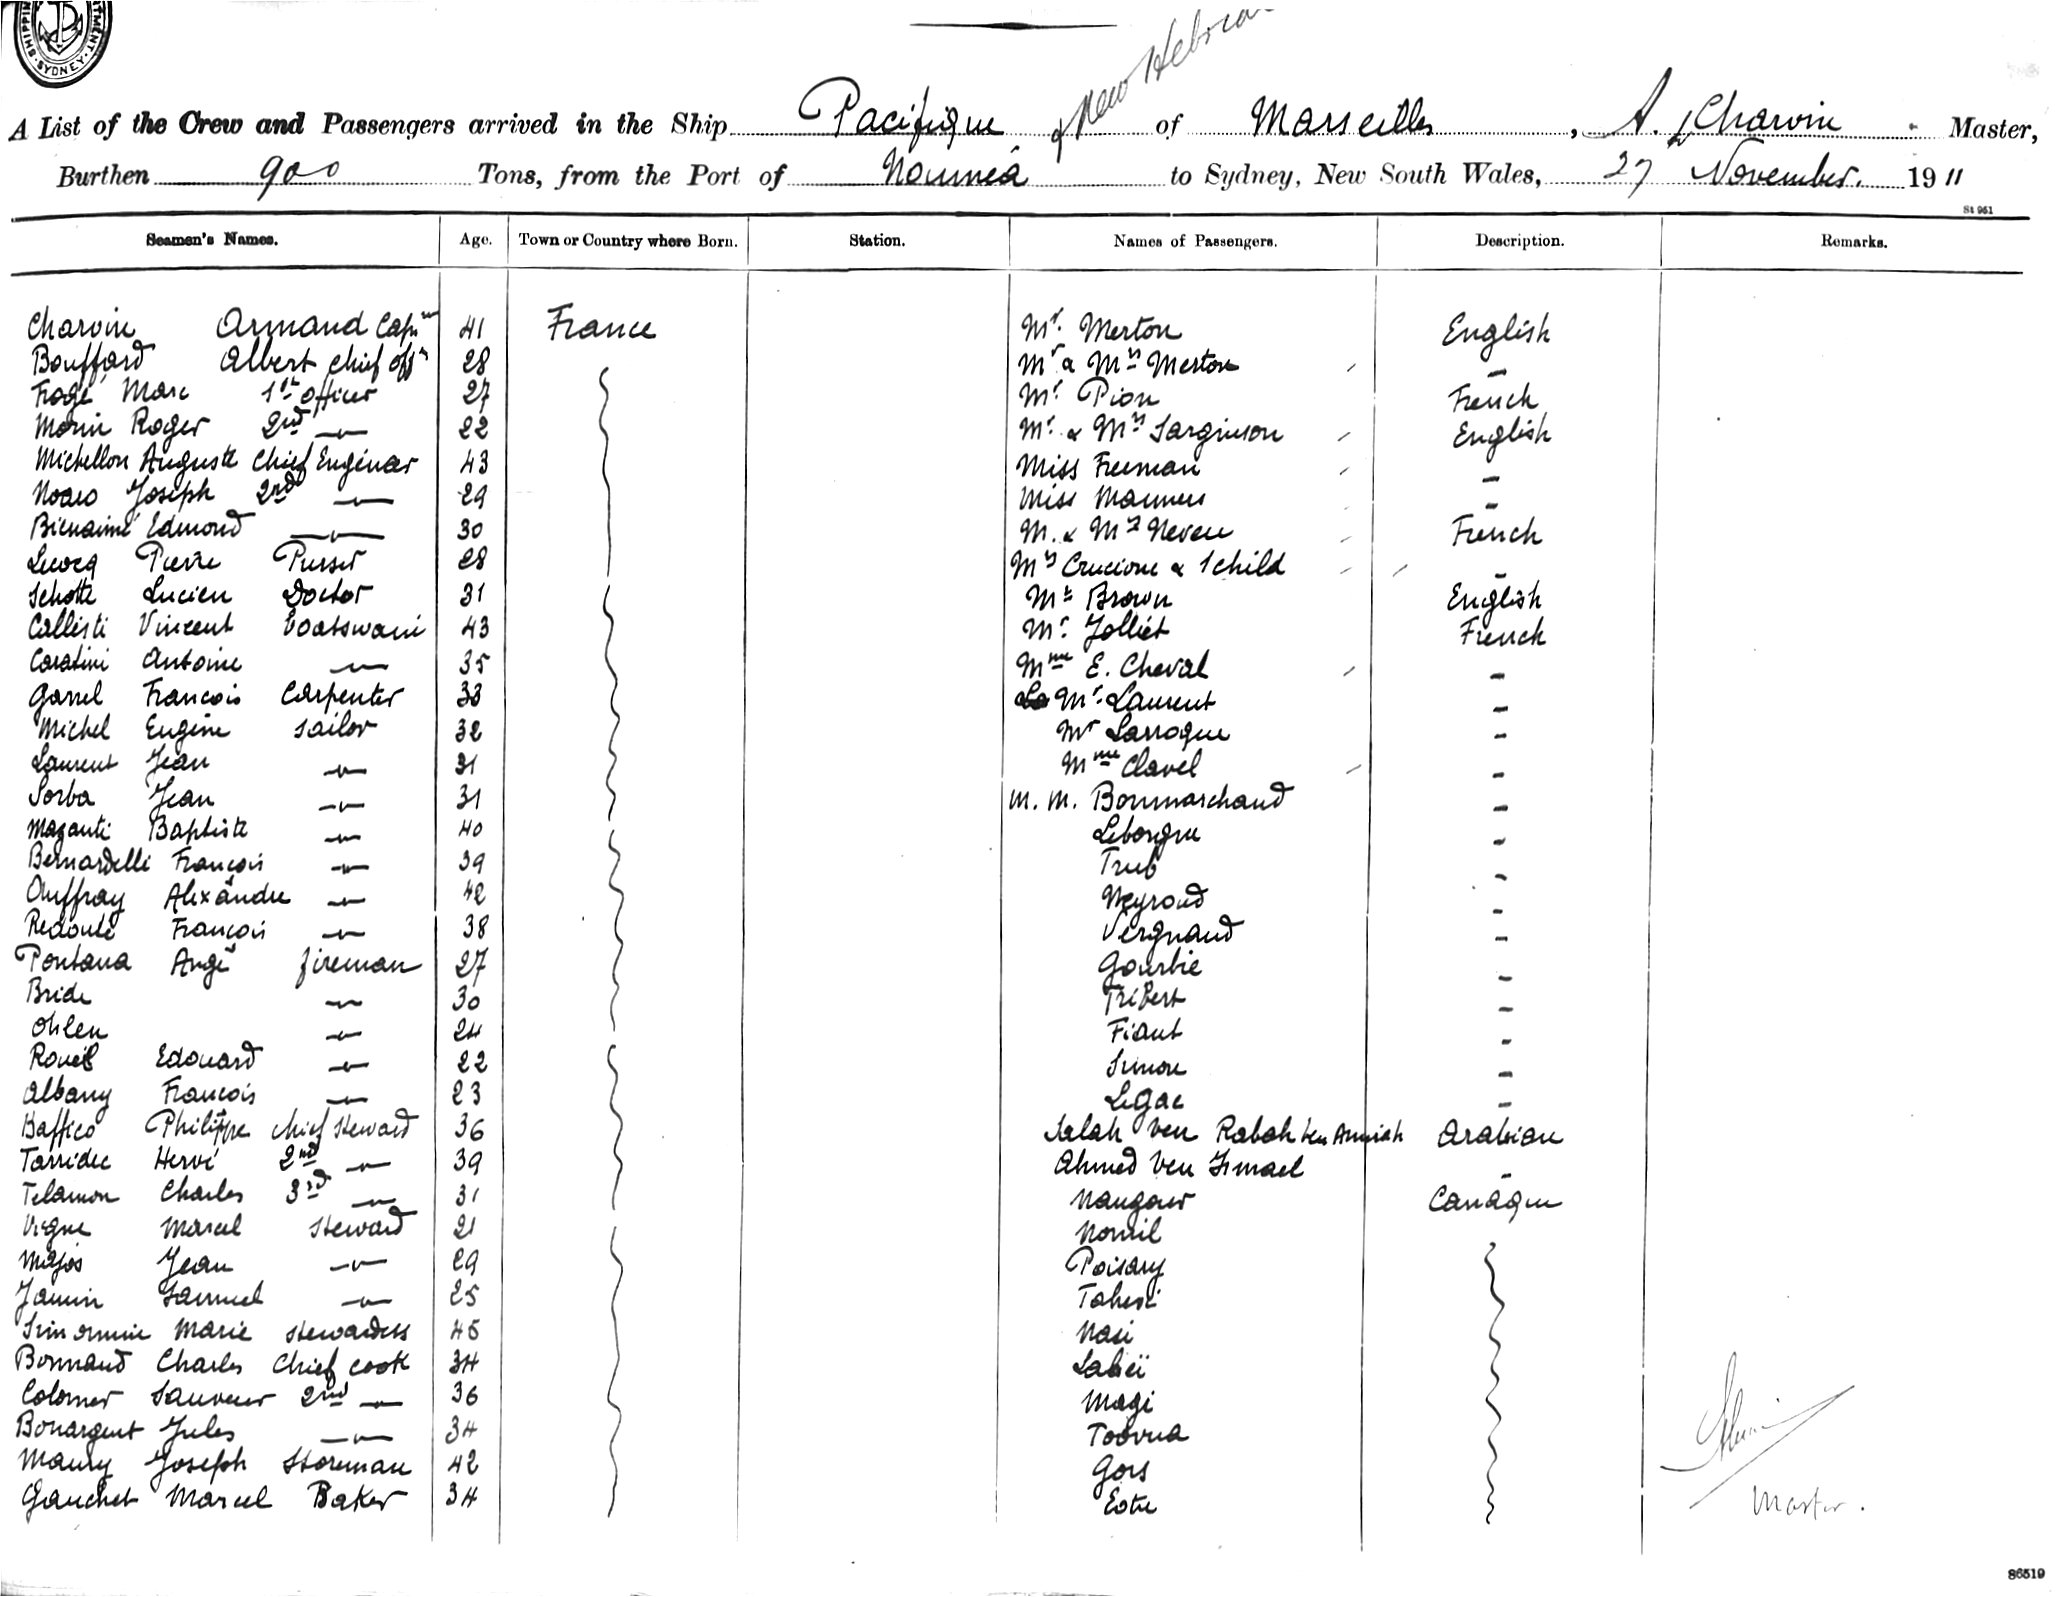 SHIPPI MENT. SYDNEY.
& New Hebrid
A List of the Crew and Passengers arrived in the Ship Pacifique of Marseilles, A. Charvin Master,
Burthen 900 Tons, from the Port of Nouméa to Sydney, New South Wales, 27 November. 1911
St 961
Seamen's Names. Age. Town or Country where Born. Station. Names of Passengers. Description. Remarks.
Charvin Armand Capn 41 France Mr. Merton English
Bouffard Albert chief offr 28 Mr & Mrs Merton –
Frogé Marc 1st officer 27 Mr Pion French
Morin Roger 2nd –"– 22 Mr. & Mrs Sarginson English
Michellon Auguste Chief Enginear 43 Miss Freeman –
Joseph 2nd –"– 29 Miss Manners –
Bienaimé Edmond –"– 30 M. & Mrs Neveu French
Lecocq Pierre Purser 28 Mrs Crucione & 1 child –
Schotte Lucien Doctor 31 Mrs Brown English
Callisti Vincent boatswain 43 Mr. Jolliet French
Caratini Antoine –"– 35 Mme E. Cheval –
Garrel Francois Carpenter 33 Mr. Laurent –
Michel Eugène sailor 32 Mr Larroque –
Laurent Jean –"– 31 Mme Clavel –
Sorba Jean –"– 31 M. M. Bonmarchand –
Mazanti Baptiste –"– 40 Leborgne –
Bernardelli François –"– 39 Trub –
Auffray Alexandre –"– 42 Neyroud –
Redouté François –"– 38 Vergnaud –
Pontana Ange fireman 27 Gourbie –
Bride –"– 30 Tribert –
Ohlen –"– 24 Fiaut –
Edouard –"– 22 Simon –
Albany Francois –"– 23 Legac –
Baffico Philippe chief steward 36 Salah ben Rabah ben Amiah Arabian
Tarridec Hervé 2nd –"– 39 Ahmed ben Ismael –
Telamon Charles 3rd –"– 31 Nangour Canaque
Vigne Marcel steward 21 Nomil
Jean –"– 29 Poisary
Jamin Samuel –"– 25
Marie stewardess 45 Nasi
Bonnaud Charles Chief cook 34 Labeï
Colomer Sauveur 2nd –"– 36 Magi
Bonargent Jules –"– 34 Toovua
Maury Joseph Storeman 42 Gors
Gauchet Marcel Baker 34
Master.
86519